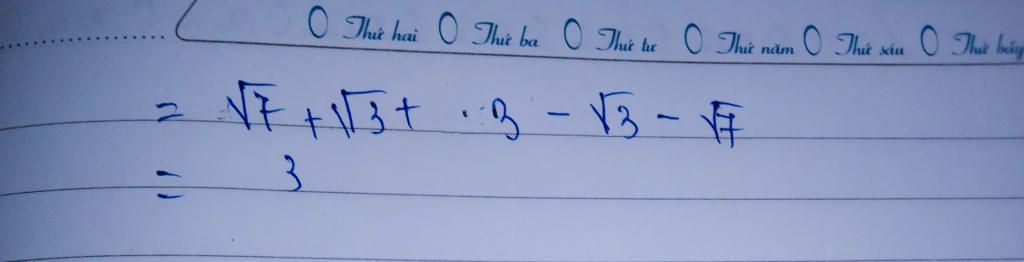 Thứ hai Thứ ba Thứ tư Thứ năm Thứ sáu Thứ bảy
= √7 + √3 + 3 - √3 - √7
= 3